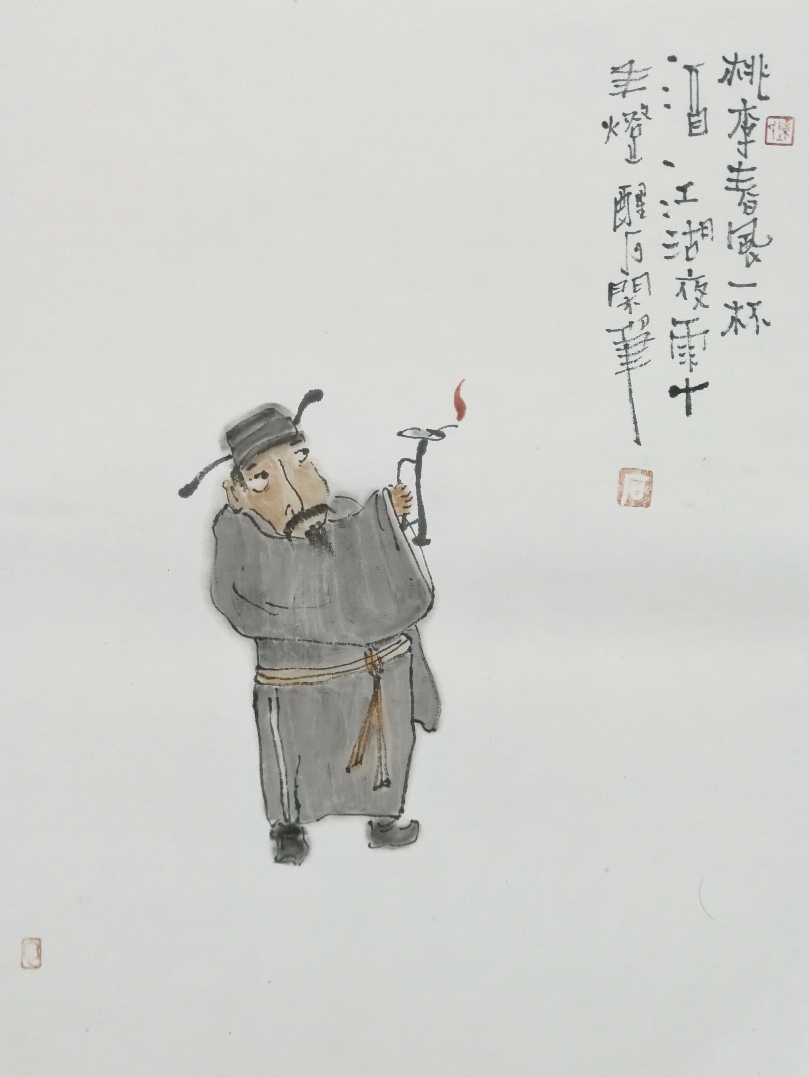 桃李春風一杯
酒江湖夜雨十
年燈 醒石閑筆
石